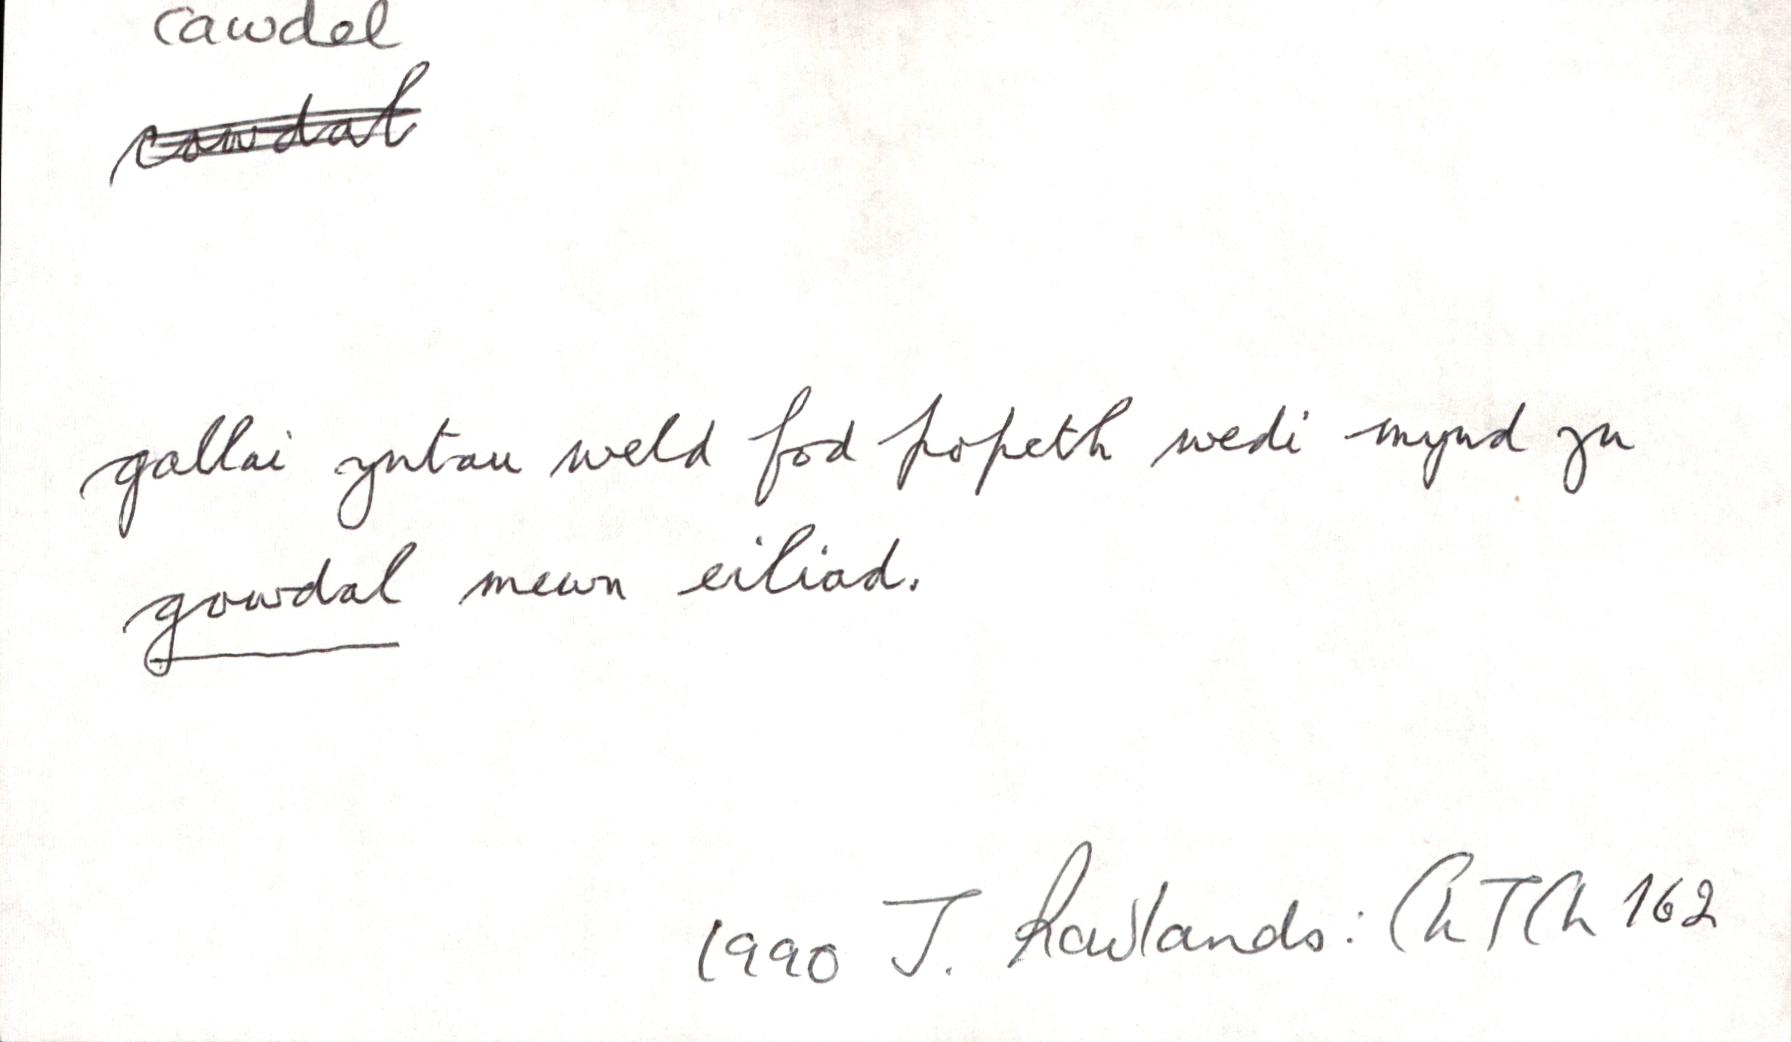 cawdel
cowdal
gallai yntau weld fod popeth wedi mynd yn
gowdal mewn eiliad.
1990 J. Rowlands: ChTCh 162